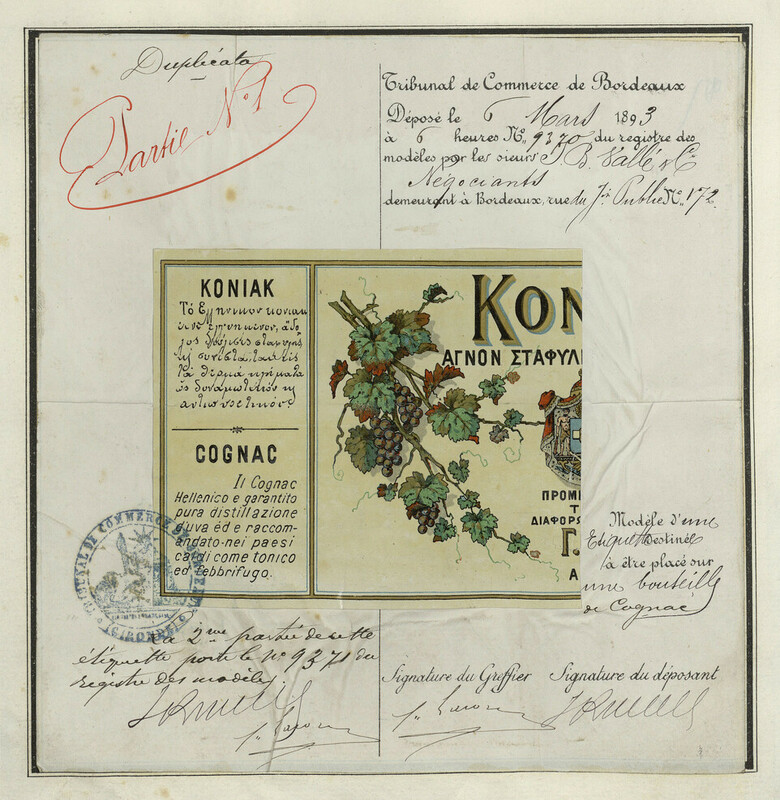 Duplicata
Partie No 1
Tribunal de Commerce de Bordeaux
Déposé le 6 Mars 1893
à 6 heures No. 9370 du registre des
modèles par les sieurs J. B. Vallé & Cie
Négociants
demeurant à Bordeaux, rue du Jin Public No. 172
KONIAK
Τό Ελληνικον κονιακ
τας θερμά κλήματα
ὡς δυναμωτικόν κ
COGNAC
Il Cognac
Hellenico e garantito
pura distillazione
d'uva ed e raccom-
andato nei paesi
caldi come tonico
ed febbrifugo.
KON
ΑΓΝΟΝ ΣΤΑΦΥΛ
ΠΡΟΜ
Τ
ΔΙΑΦΟΡΩ
Γ.
Α
Modèle d'une
Etiquette destinée
à être placé sur
une bouteille
de Cognac
TRIBUNAL DE COMMERCE DE
(GIRONDE)
La 2me partie de cette
étiquette porte le no 9371 du
registre des modèles.
Signature du Greffier Signature du déposant